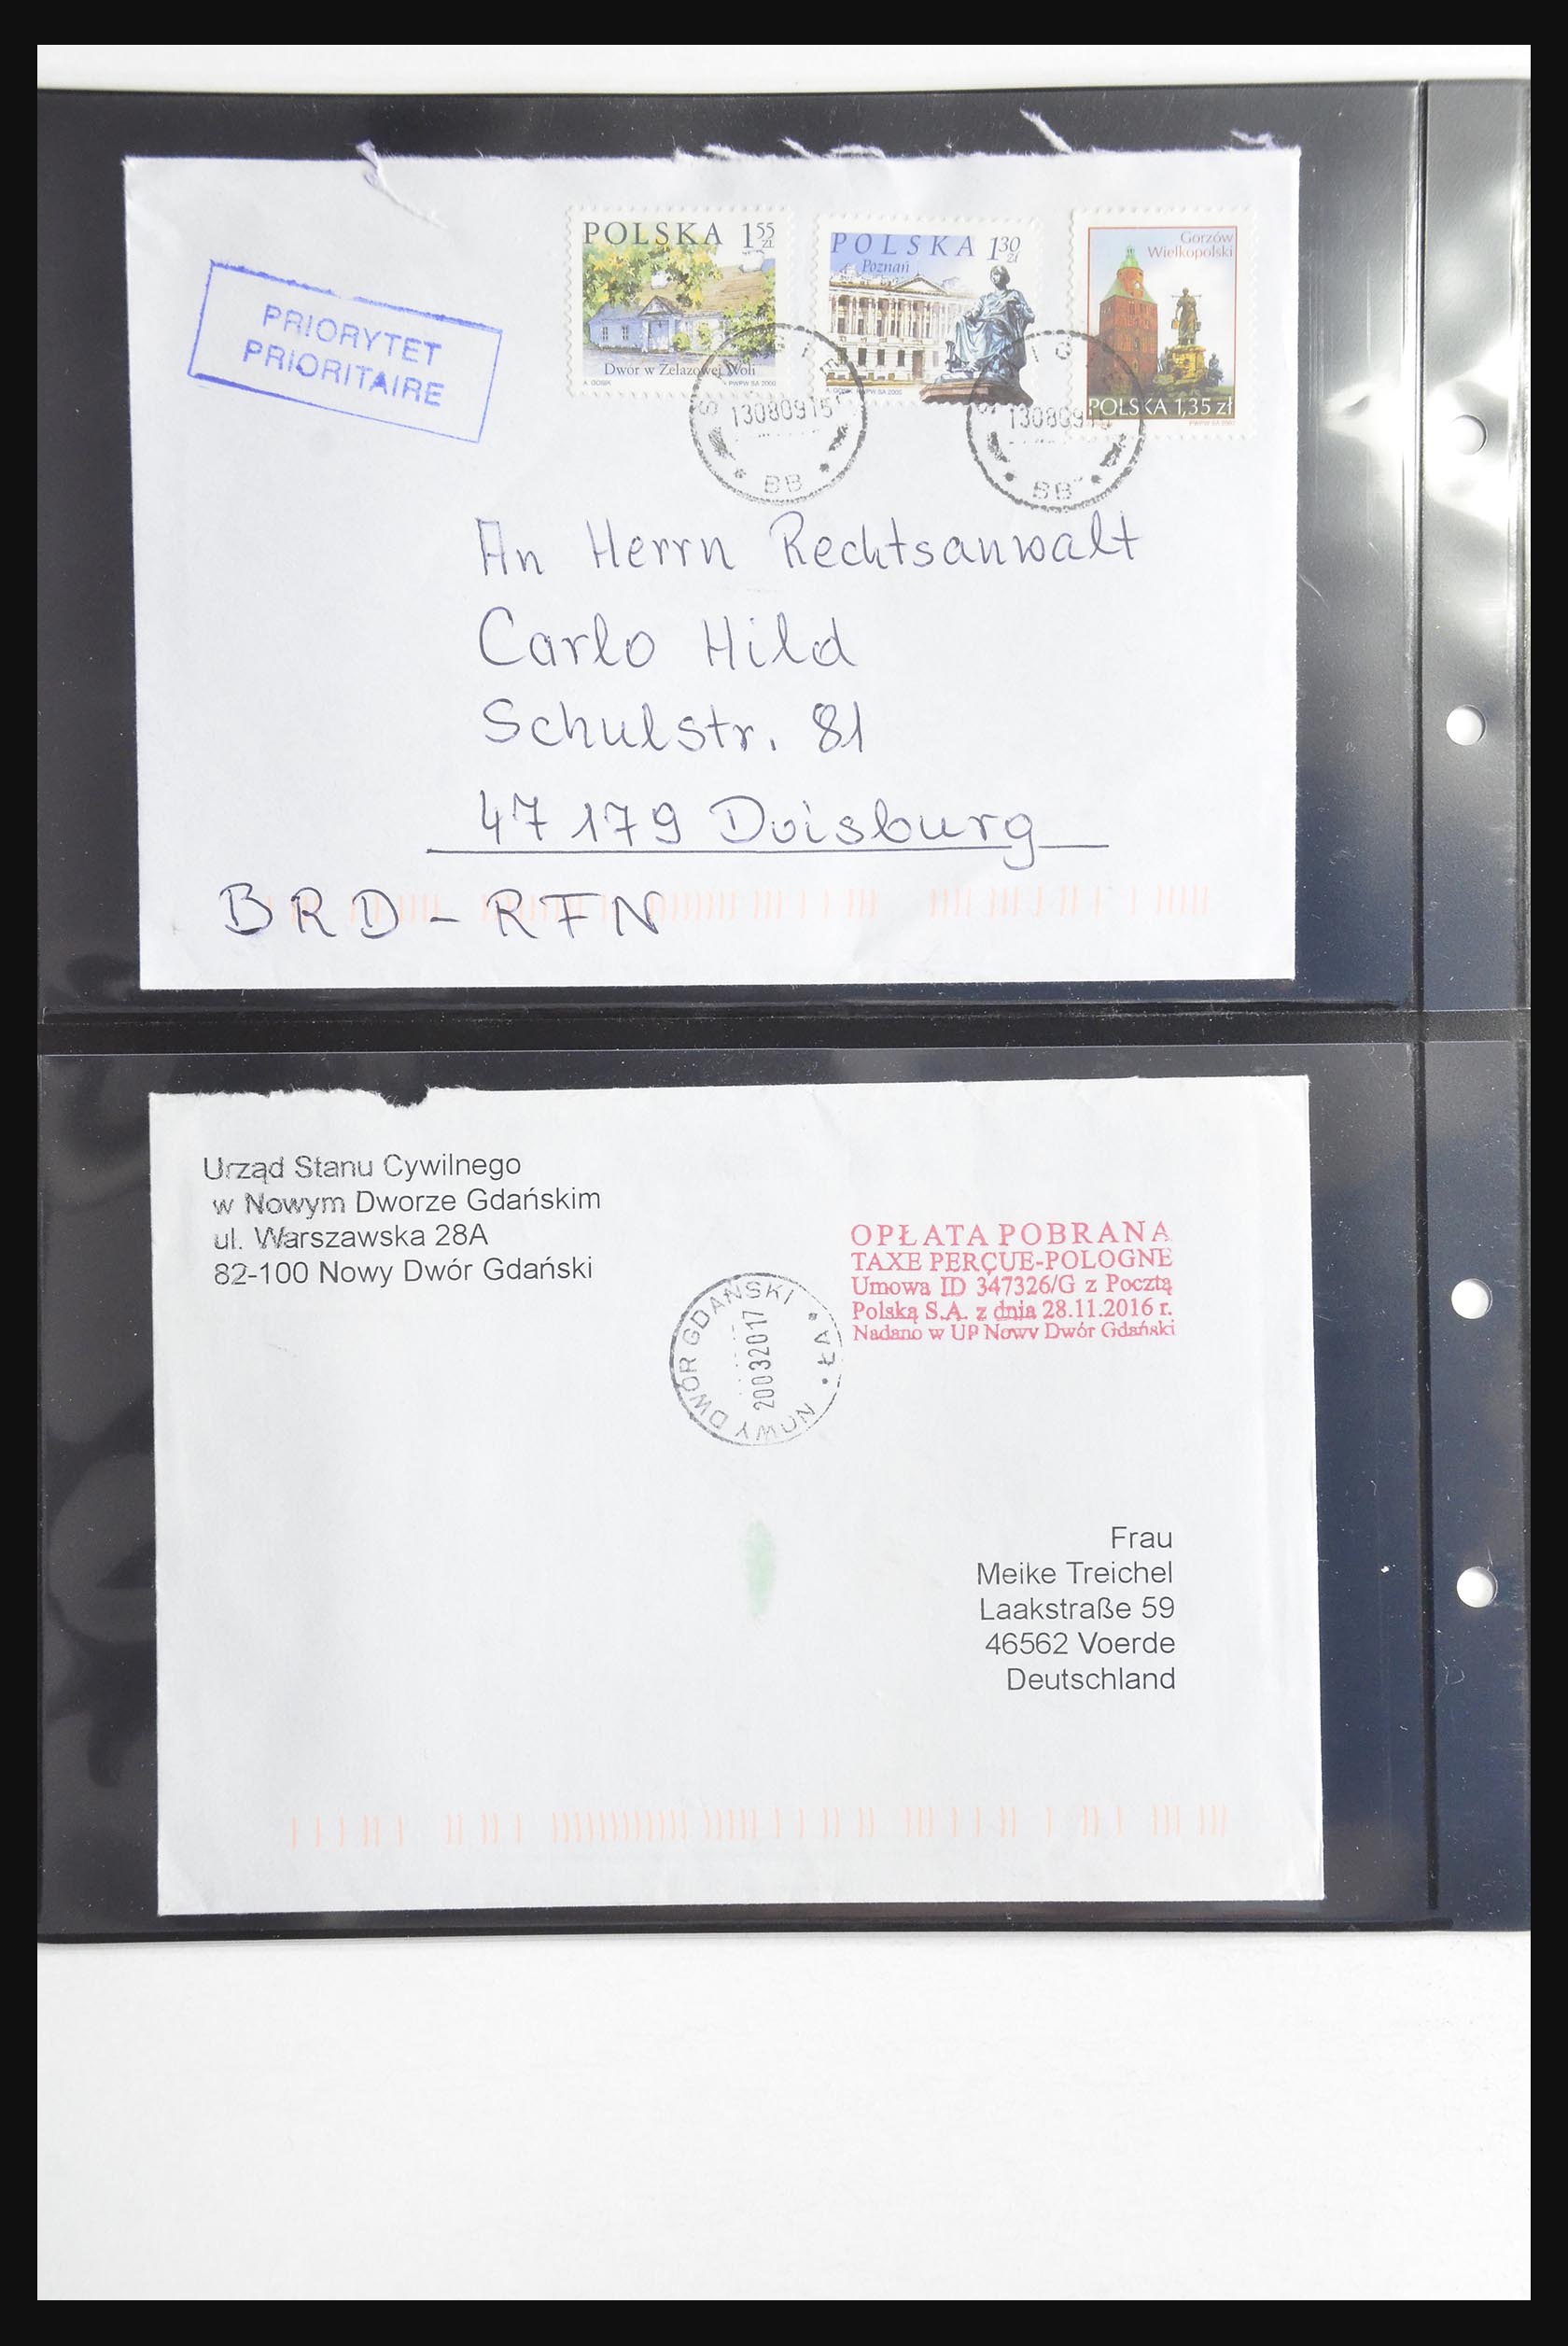 POLSKA 1 55 zł
Dwór w Żelazowej Woli
A. GOSIK PWPW SA 2000
POLSKA 1 30 zł
Poznań
PWPW SA 2005
Gorzów
Wielkopolski
POLSKA 1,35 zł
PWPW SA 2007
PRIORYTET
PRIORITAIRE
13080915
BB
130809
BB
An Herrn Rechtsanwalt
Carlo Hild
Schulstr. 81
47179 Duisburg
BRD - RFN
Urząd Stanu Cywilnego
w Nowym Dworze Gdańskim
ul. Warszawska 28A
82-100 Nowy Dwór Gdański
OPŁATA POBRANA
TAXE PERÇUE-POLOGNE
Umowa ID 347326/G z Pocztą
Polską S.A. z dnia 28.11.2016 r.
Nadano w UP Nowy Dwór Gdański
NOWY DWÓR GDAŃSKI
20032017
ŁA
Frau
Meike Treichel
Laakstraße 59
46562 Voerde
Deutschland